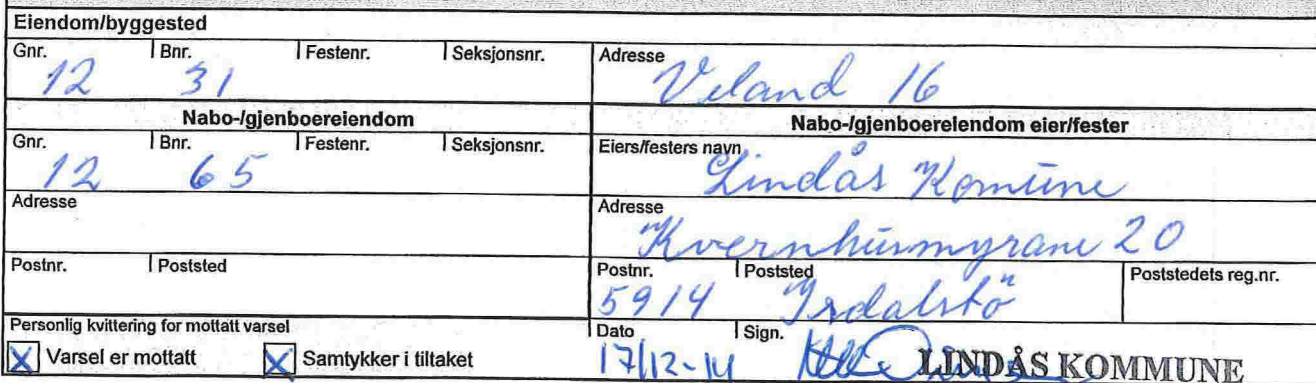 Eiendom/byggested
Gnr. Bnr. Festenr. Seksjonsnr. Adresse
12 31 Veland 16
Nabo-/gjenboereiendom Nabo-/gjenboereiendom eier/fester
Gnr. Bnr. Festenr. Seksjonsnr. Eiers/festers navn
12 65 Lindås Komune
Adresse Adresse
Kvernhusmyrane 20
Postnr. Poststed Postnr. Poststed Poststedets reg.nr.
5914 Isdalstö
Personlig kvittering for mottatt varsel Dato Sign.
X Varsel er mottatt X Samtykker i tiltaket 17/12-14 LINDÅS KOMMUNE